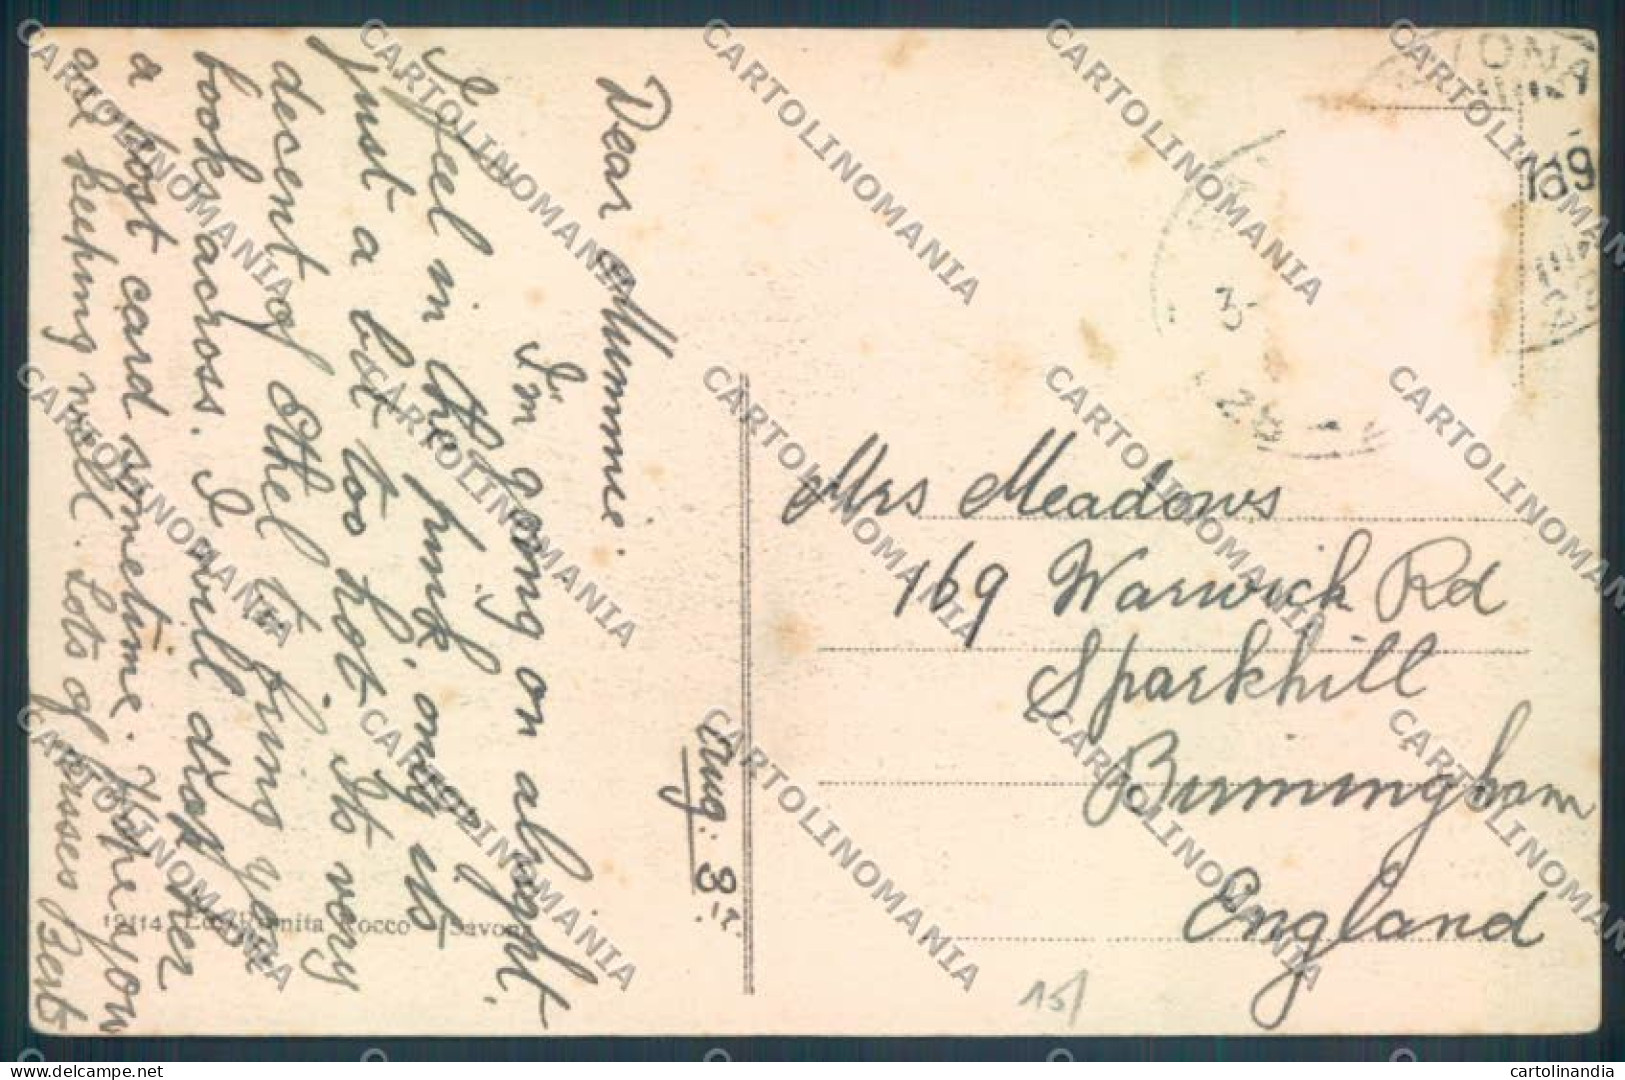 Dear Mummie.
I'm going on alright.
I feel in the pink, only its
just a bit too hot. Its very
decent of Ethel to bring your
books across. I will drop her
a post card sometime. Hope you
are keeping well. Lots of kisses Bert
Aug. 3rd.
12114 Ed. Bennita Rocco - Savona
Mrs Meadows
169 Warwick Rd
Sparkhill
Birmingham
England
15/
ONA
3
28
19
CARTOLINOMANIA
delcampe.net
cartolinandia